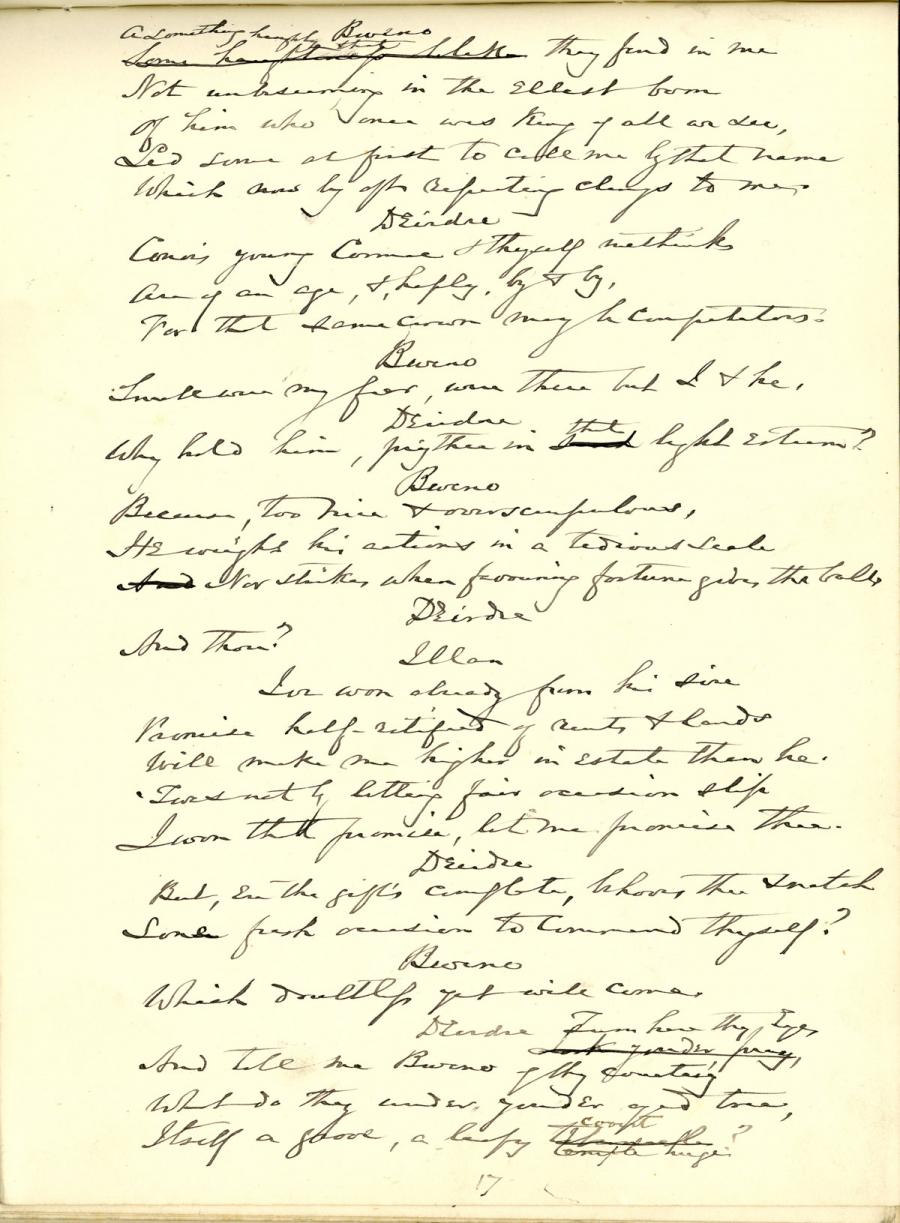 Bweno
A something haughty that
Some haughtiness they find in me
Not unbeseeming in the Ellest born
Of him who once was King of all we see,
Led some at first to call me by that name
Which now by oft repeating clings to me.
DEirdre
Conor's young Cormac & thyself methinks
Are of an age, &, haply, by & by,
For that same crown may be competitors.
Bweno
Small were my fear, were there but I & he.
DEirdre
Why hold him, prythee in that such light Esteem?
Bweno
Because, too nice & overscrupulous,
HE weighs his actions in a tedious scale
And Nor strikes when favouring fortune gives the ball.
DEirdre
And thou?
Illan
I've won already from his sire
Promise half-ratified of rents & lands
Will make me higher in Estate than he.
'Twas not by letting fair occasion slip
I won that promise, let me promise thee.
DEirdre
But, Ere the gift's complete, behoves thee snatch
Some fresh occasion to commend thyself?
Bweno
Which doubtless yet will come.
DEirdre Turn here thy Eyes
Look yonder, pray,
And tell me Bweno of thy courtesy
What do they under yonder aged tree,
Itself a grove, a leafy court
temple huge?
17